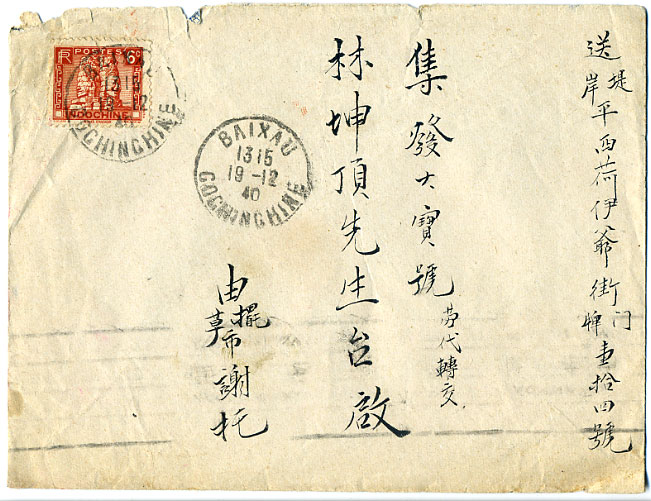 送堤岸平西荷伊爺街门牌壹拾四號
集發大寶號
勞代轉交
林坤頂先生台啟
由草市謝托
RF POSTES 6c
INDOCHINE
13 15
19-12
40
COCHINCHINE
BAIXAU
13 15
19-12
40
COCHINCHINE